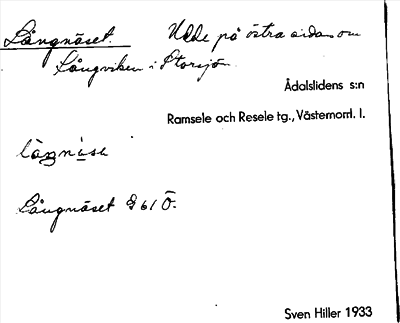 Långnäset. Udde på östra sidan om
Långviken i Storsjön
Ådalslidens s:n
Ramsele och Resele tg., Västernorrl. l.
Långnäset G 61 Ö.
Sven Hiller 1933